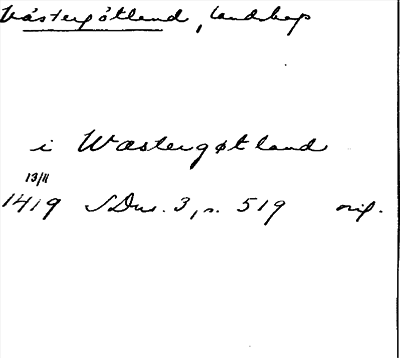 Västergötland, landskap
i Wæstergøtland
13/11
1419 SDns. 3, s. 519 orig.